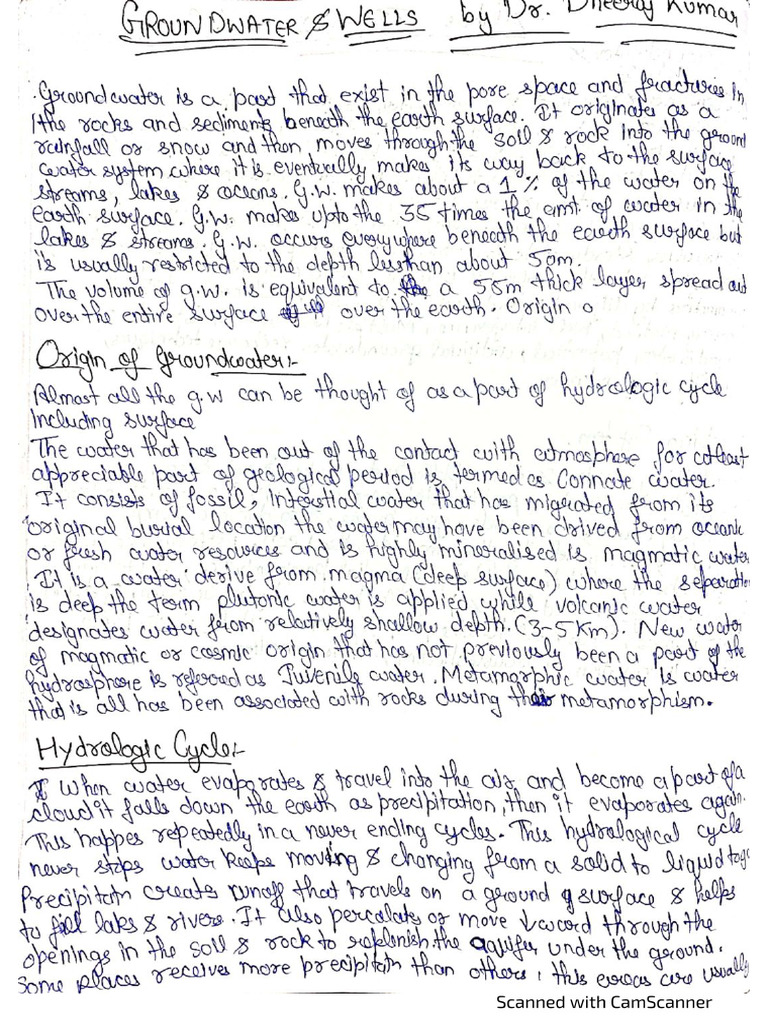 GROUNDWATER & WELLS by Dr. Dheeraj Kumar
Groundwater is a part that exist in the pore space and fractures in
the rocks and sediments beneath the earth surface. It originates as a
rainfall or snow and then moves through the soil & rock into the ground
water system where it is eventually makes its way back to the surface
streams, lakes & oceans. G.W. makes about a 1% of the water on the
earth surface. G.W. makes upto the 35 times the amt. of water in the
lakes & streams. G.W. occurs everywhere beneath the earth surface but
is usually restricted to the depth less than about 50m.
The volume of g.w. is equivalent to a 55m thick layer spread out
over the entire surface over the earth. Origin o
Origin of Groundwater:-
Almost all the g.w can be thought of as a part of hydrologic cycle
Including surface
The water that has been out of the contact with atmosphere for atleast
appreciable part of geological period is termed as Connate water.
It consists of fossil, interstial water that has migrated from its
original burial location the water may have been drived from oceanic
or fresh water resources and is highly mineralised is magmatic water
It is a water derive from magma (deep surface) where the separation
is deep the term plutonic water is applied while volcanic water
designates water from relatively shallow depth. (3-5 Km). New water
of magmatic or cosmic origin that has not previously been a part of the
hydrosphere is referred as Juvenile water. Metamorphic water is water
that is all has been associated with rocks during their metamorphism.
Hydrologic Cycle:-
When water evaporates & travel into the air and become a part of a
cloud it falls down the earth as precipitation, then it evaporates again.
This happes repeatedly in a never ending cycles. This hydrological cycle
never stops water keeps moving & changing from a solid to liquid to gas
Precipitatn creates runoff that travels on a ground surface & helps
to fill laks & rivers. It also percalats or move ↓ward through the
openings in the soil & rock to replenish the aquifer under the ground.
Some places receives more precipitatn than others, this areas are usually
Scanned with CamScanner